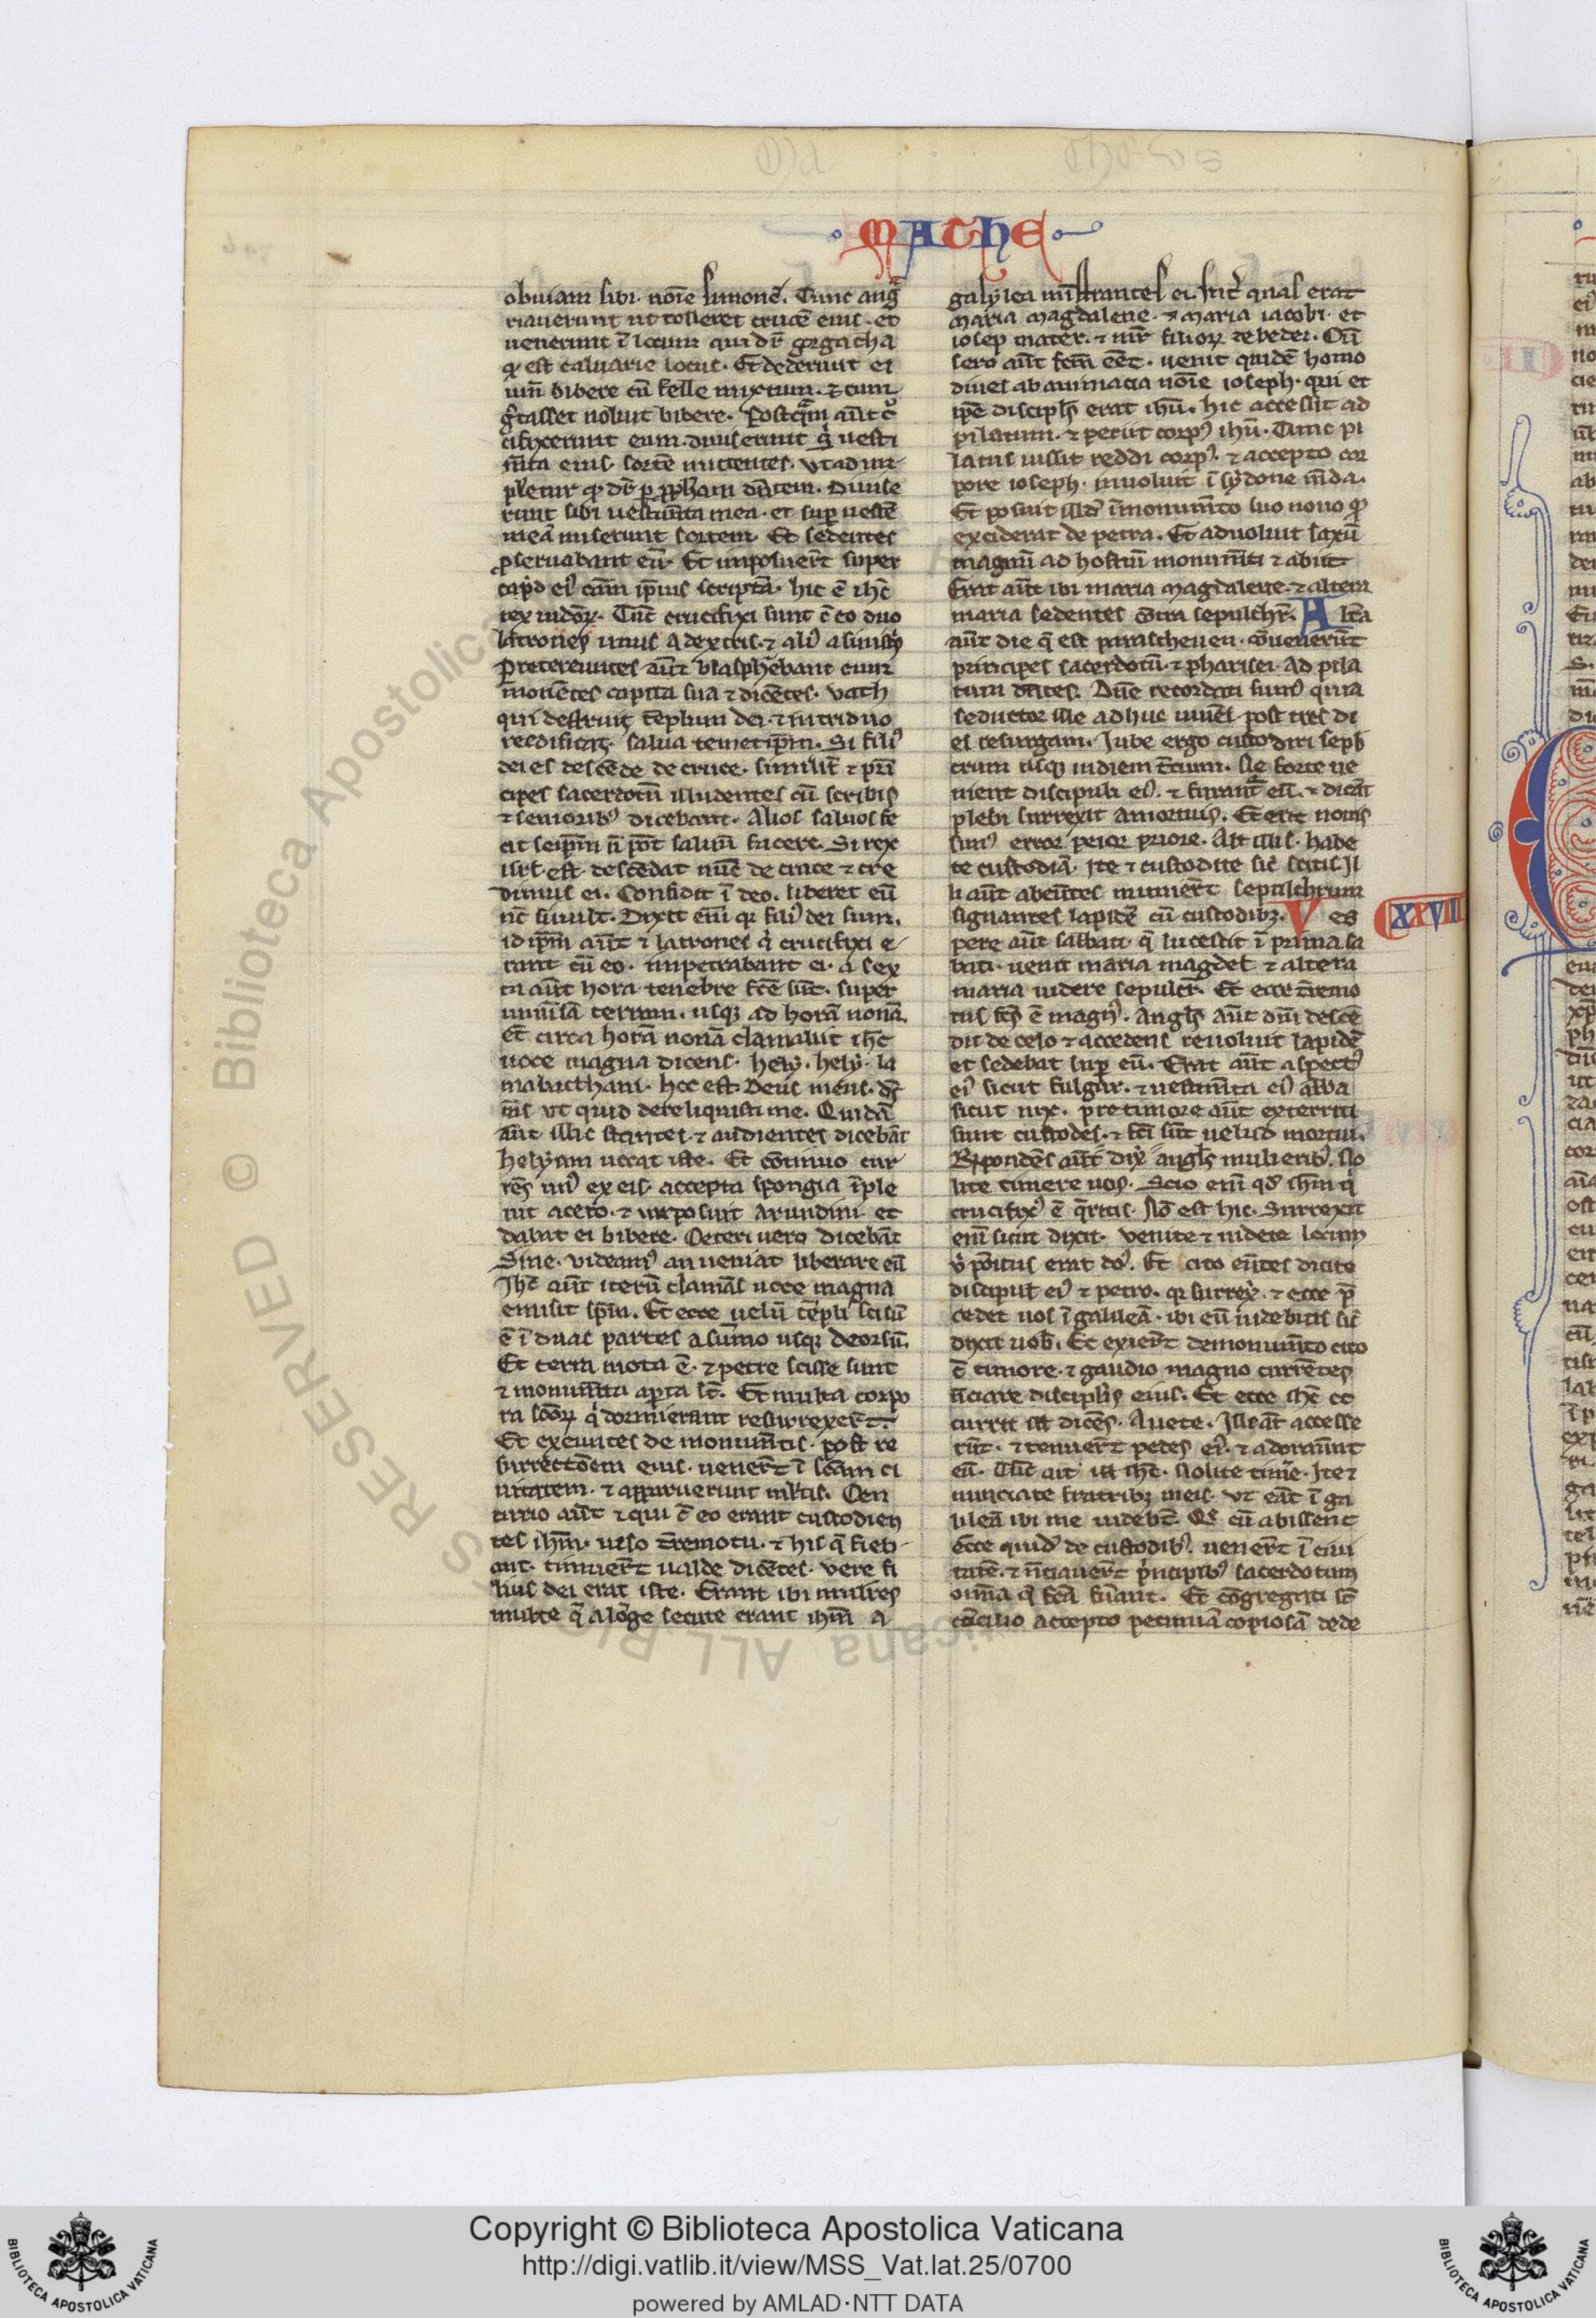 MATHE
obuiam sibi. noīe simonē. Tunc anḡ
riauerunt ut tolleret crucē eius. et
uenerunt ī locum qui dr̄ golgatha
qđ est caluarie locus. Et dederunt ei
uinū bibere cū felle mixtum. ⁊ cum
gͣtasset noluit bibere. Postqͣm aūt cͮ
cifixerunt eum. diuiserunt sͥ uesti
m̄ta eius. sortē mittentes. vt adim
pletur qđ dc̄ ꝑ ꝓph̄am dicentem. Diuise
runt sibi uestim̄ta mea. et suꝑ uestē
meā miserunt sortem. Et sedentes
ꝓseruabant eū. Et imposuer̄t super
capđ eiꝰ cām ipsius scriptā. hic ē ihc̄
rex iudeoꝝ. Tūc crucifixi sunt c̄ eo duo
latrones unus a dextris. ⁊ aliꝰ a sinistͥs
Pretereuntes aūt blasphēbant eum
mouētes capita sua ⁊ dicētes. vath
qui destruit tēplum dei. ⁊ in triduo
reedificat. salua temetip̄m. Si filiꝰ
dei es descēde de cruce. similit̄ ⁊ prī
cipes sacerdotū illudentes cū scribis
⁊ senioribꝰ dicebant. Alios saluos fe
cit seip̄m ñ pōt saluū facere. Si rex
isrl̄ est descēdat nūc de cruce ⁊ cre
dimus ei. Confidit ī deo. liberet eū
nc̄ si uult. Dixit eīm qꝛ filiꝰ dei sum.
id ip̄m aūt ⁊ latrones qͥ crucifixi e
rant cū eo. impetrabant ei. a sex
ta aūt hora tenebre fcē sūt. super
uniuīsā terram. usqꝫ ad horā nonā.
Et circa horā nonā clamauit ihc̄
uoce magna dicens. hely. hely. la
mabacthani. hoc est. Deus meus. dš
mš vt quid dereliquisti me. Quidā
aūt illic stantes ⁊ audientes dicebāt
helyam uocat iste. Et cōtinuo cur
rēs unꝰ ex eis. accepta spongia īple
uit aceto. ⁊ imposuit arundini. et
dabat ei bibere. Ceteri uero dicebāt
Sine. videamꝰ an ueniat liberare eū
Ihc̄ aūt iterū clamās uoce magna
emisit sp̄m. Et ecce uelū tēpli scisū
ē ī duas partes a sūmo usqꝫ deorsū.
Et terra mota ē. ⁊ petre scisse sunt
⁊ monum̄ta aꝑta st̄. Et multa corpo
ra scōꝝ qͥ dormierant resurrexer̄t.
Et exeuntes de monum̄tis. post re
surrectōem eius. uener̄t ī scām ci
uitatem. ⁊ apparuerunt ml̄tis. Cen
turio aūt ⁊ qui c̄ eo erant custodien
tes ihm̄. uiso t̄remotu. ⁊ his q̄ fieb
ant. timuer̄t ualde dicētes. vere fi
lius dei erat iste. Erant ibi mulieres
multe q̄ a lōge secute erant ihm̄ a
galylea mīstrantes ei. int̄ quas erat
Maria magdalene. ⁊ maria iacobi. et
iosep mater. ⁊ mr̄ filioꝝ zebedei. Cū
sero aūt fcm̄ eēt. uenit quidē homo
diues ab arimacia noīe ioseph. qui et
ip̄e disciplꝰs erat ihū. hic accessit ad
pilatum. ⁊ petiit corpꝰ ihū. Tunc pi
latus iussit reddi corpꝰ. ⁊ accepto cor
pore ioseph. inuoluit ī sydone mūda.
Et posuit illđ ī monum̄to suo nouo qđ
exciderat de petra. Et aduoluit saxū
magnū ad hostiū monum̄ti ⁊ abiit
Erat aūt ibi maria Magdalene. ⁊ altera
maria sedentes cōtra sepulchr̄. Altēa
aūt die q̄ est parascheuen. cōuenerūt
principes sacerdotū. ⁊ pharisei. Ad pila
tum dicētes. Dn̄e recordati sumꝰ quia
seductor ille adhuc uiuēs. post tres di
es resurgam. Iube ergo custodiri seplͨ
crum usqꝫ in diem t̄cium. Ne forte ue
nient discipuli eiꝰ. ⁊ furant̄ eū. ⁊ dicāt
plebi surrexit a mortuis. Et erit nouis
simꝰ error peior priore. Ait illis. habe
te custodiā. Ite ⁊ custodite sic̄ scitis. Il
li aūt abeūtes munier̄t sepulchrum
signantes lapidē cū custodibꝫ. Ves
XXVIII
pere aūt sabbati. q̄ lucescit ī prima sa
bati. uenit maria magdel̄ ⁊ altera
maria uidere sepulcr̄. Et ecce t̄remo
tus fcs̄ ē magnꝰ. Angls̄ aūt dn̄i descē
dit de celo ⁊ accedens reuoluit lapidē
et sedebat suꝑ eū. Erat aūt aspectꝰ
eiꝰ sicut fulgur. ⁊ uestim̄ta eiꝰ alba
sicut nix. pre timore aūt exterriti
sunt custodes. ⁊ fcī sūt uelud mortui.
Rn̄pondēs aūt dixͭ angls̄ mulieribꝰ. No
lite timere uos. Scio enī qđ ihm̄ qͥ
crucifixꝰ ē qͣritis. Nō est hic. Surrexit
enī sicut dixit. Venite ⁊ uidete locum
vͥ pōitus erat dōꝰ. Et cito eūtes dicite
discipul̄ eiꝰ ⁊ petro. qꝛ surrexͭ. ⁊ ecce p̄
cedet uos ī galileā. ibi eū uidebitis sic̄
dixit uob̄. Et exier̄t de monum̄to cito
c̄ timore. ⁊ gaudio magno currētes
n̄ciare disciplis̄ eius. Et ecce ihc̄ oc
currit ill̄ dicēs. Auete. Ille āt accesse
rūt. ⁊ tenuer̄t pedes eiꝰ. ⁊ adorauūt
eū. Tūc ait ill̄ ihc̄. Nolite timͤe. Ite ⁊
nunciate fratribꝫ meis. vt eāt ī ga
lileā ibi me uidebt̄. Qe cū abissent
ecce quidͣ de custodibꝰ. uener̄t ī ciui
tatē. ⁊ n̄ciauer̄t pͥncipibꝰ sacerdotum
omīa q̄ fcā fūant. Et cōgregati st̄
cōcilio accepto pecuniā copiosā dede
Copyright © Biblioteca Apostolica Vaticana
http://digi.vatlib.it/view/MSS_Vat.lat.25/0700
powered by AMLAD·NTT DATA
BIBLIOTECA APOSTOLICA VATICANA
BIBLIOTECA APOSTOLICA VATICANA